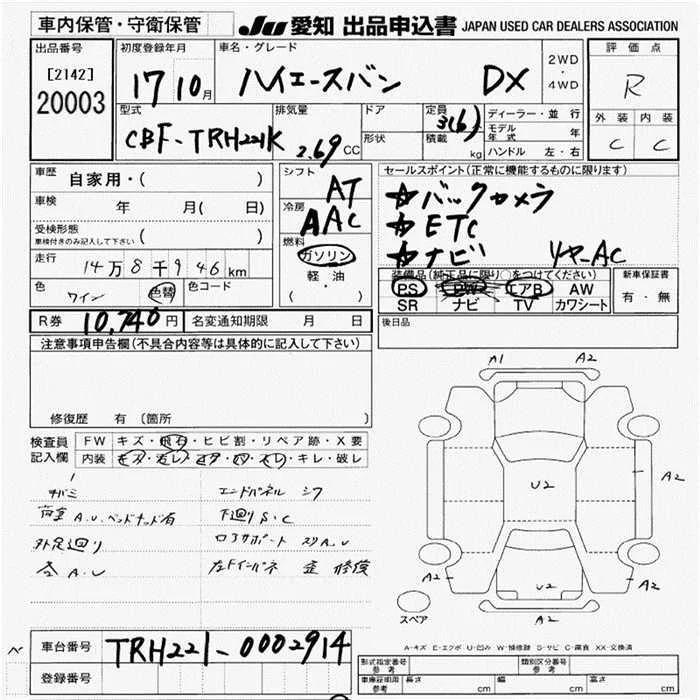 車内保管・守衛保管
JU 愛知 出品申込書 JAPAN USED CAR DEALERS ASSOCIATION
出品番号
[2142]
20003
初度登録年月
17 10月
車名・グレード
ハイエースバン DX
2WD
・
4WD
評価点
R
外装 内装
C C
型式
CBF-TRH221K
排気量
2.69 CC
ドア
形状
定員
3(6)
積載
kg
ディーラー・並行
モデル年式 年
ハンドル 左・右
車歴 自家用・( )
車検 年 月( 日)
受検形態
車検付きのみ記入して下さい ( )
走行 14万8千9 46 km
色 ワイン 色替 色コード
R券 10,740円 名変通知期限 月 日
シフト
AT
冷房
AAC
燃料
ガソリン
軽油
( ・ )
セールスポイント(正常に機能するものに限ります)
☆バックカメラ
☆ETC
☆ナビ リヤ-AC
装備品(純正品に限り○をつけてください)
PS PW エアB AW
SR ナビ TV カワシート
新車保証書
有・無
後日品
注意事項申告欄(不具合内容等は具体的に記入して下さい)
修復歴 有 (箇所
検査員 記入欄
FW キズ・飛石・ヒビ割・リペア跡・X要
内装 キズ・汚レ・コゲ・凹・スレ・キレ・破レ
荷室 A.U.ベッドキッド有
外足廻り
全 A.U
エンドパネル シワ
下廻り S.C
コアサポート スリA.U
左Fインパネ 歪 修復
A1 A2
U2
A2
U2
A2 A2
A2
スペア
A-キズ E-エクボ U-凹み W-補修跡 S-サビ C-腐食 XX-交換済
車台番号 TRH221-0002914
登録番号
型式指定番号 参考
類別区分番号 参考
車庫証明用 参考
長さ cm 幅 cm 高さ cm